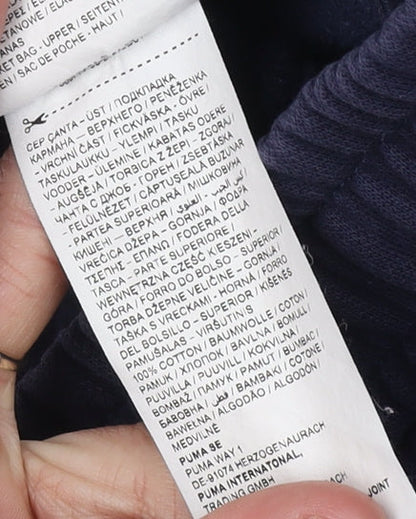 CEP ÇANTA – ÜST / ПОДКЛАДКА
КАРМАНА – ВЕРХНЕГО / PEVĒŽENKA
- VRCHNÍ ČÁST / FICKVÄSKA - ÖVRE /
TASKULAUKKU - YLEMPI / TASKU
VODDER - ÜLEMINE / KABATAS ODERE
- AUGŠĒJA / TORBICA Z ŽEP - ZGORAJ /
ЧАНТА С ДЖОБ - ГОРЕН / ZSEBTÁSKA
- FELÜLNÉZET / CĂPTUȘEALĂ BUZUNAR
- PARTEA SUPERIOARĂ / МІШКОВИНА
КИШЕНІ – ВЕРХНЯ /
VREĆICA DŽEPA – GORNJA / ΦΟΔΡΑ
ΤΣΕΠΗΣ - ΕΠΑΝΩ / FODERA DELLA
TASCA - PARTE SUPERIORE /
WEWNĘTRZNA CZĘŚĆ KIESZENI -
GÓRA / FORRO DO BOLSO - SUPERIOR /
TORBA DŽEPNE VELIČINE - GORNJA /
TAŠKA S VRECKAMI - HORNÁ / FORRO
DEL BOLSILLO - SUPERIOR / KIŠENĖS
PAMUŠALAS - VIRŠUTINIS
100% COTTON / BAUMWOLLE / COTON /
PAMUK / ХЛОПОК / BAVLNA / BOMULL /
PUUVILLA / PUUVILL / KOKVILNA /
BOMBAŽ / ПАМУК / PAMUT / BUMBAC /
БАВОВНА / قطن / ΒΑΜΒΑΚΙ / COTONE /
BAWEŁNA / ALGODÃO / ALGODÓN /
MEDVILNĖ
PUMA SE
PUMA WAY 1
DE-91074 HERZOGENAURACH
PUMA INTERNATONAL,
TRADING GMBH
JOINT